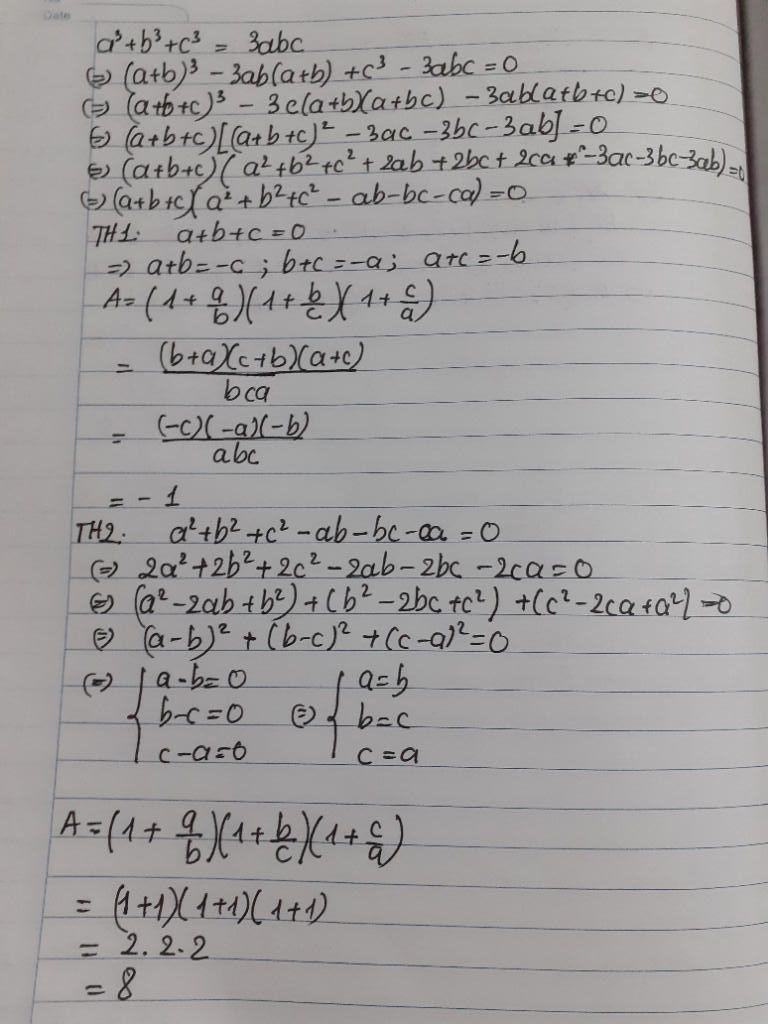 Date
a³+b³+c³ = 3abc
(=) (a+b)³ - 3ab(a+b) +c³ - 3abc = 0
(=) (a+b+c)³ - 3c(a+b)(a+bc) - 3ab(a+b+c) = 0
(=) (a+b+c)[(a+b+c)² - 3ac - 3bc - 3ab] = 0
(=) (a+b+c)(a²+b²+c²+2ab+2bc+2ca - 3ac-3bc-3ab)=0
(=) (a+b+c)(a²+b²+c² - ab-bc-ca) = 0
TH1: a+b+c = 0
=> a+b=-c ; b+c=-a; a+c=-b
A= (1+a/b)(1+b/c)(1+c/a)
= (b+a)(c+b)(a+c)/bca
= (-c)(-a)(-b)/abc
= - 1
TH2. a²+b²+c²-ab-bc-ca = 0
(=) 2a²+2b²+2c²-2ab-2bc-2ca=0
(=) (a²-2ab+b²)+(b²-2bc+c²)+(c²-2ca+a²)=0
(=) (a-b)²+(b-c)²+(c-a)²=0
(=) { a-b=0 { a=b
b-c=0 (=) b=c
c-a=0 c=a
A=(1+a/b)(1+b/c)(1+c/a)
= (1+1)(1+1)(1+1)
= 2.2.2
= 8